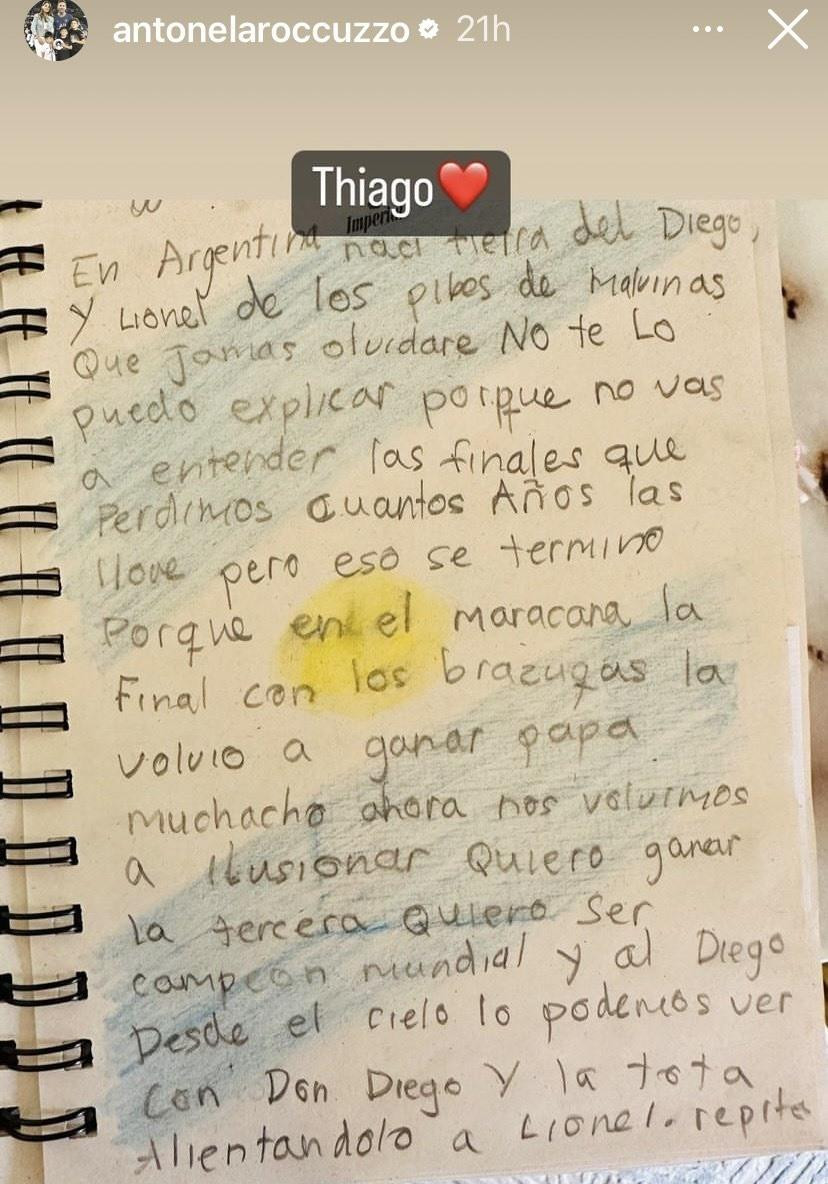 antonelaroccuzzo 21h
Thiago
En Argentina naci tierra del Diego,
Y Lionel de los pibes de Malvinas
Que Jamas olvidare NO te Lo
puedo explicar porque no vas
a entender las finales que
Perdimos cuantos Años las
llore pero eso se termino
Porque en el maracana la
Final con los brazugas la
volvio a ganar papa
muchacho ahora nos volvimos
a ilusionar Quiero ganar
la tercera Quiero Ser
campeon mundial y al Diego
Desde el cielo lo podemos ver
con Don Diego Y la tota
Alientandolo a Lionel. repite